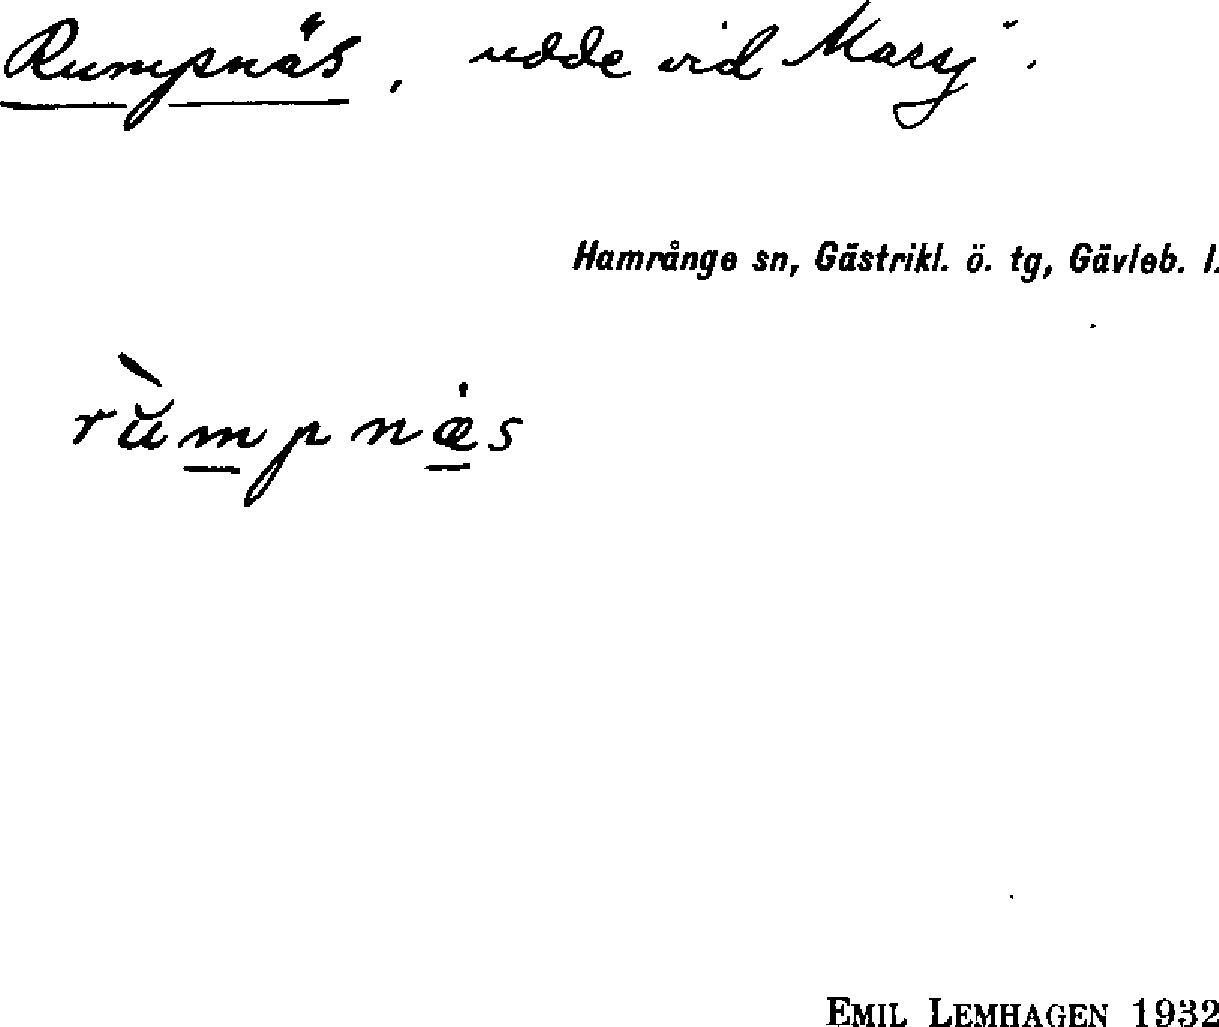 Rumpnäs, udde vid Marsj.
Hamrånge sn, Gästrikl. ö. tg, Gävleb. l.
rùmpnæs
EMIL LEMHAGEN 1932